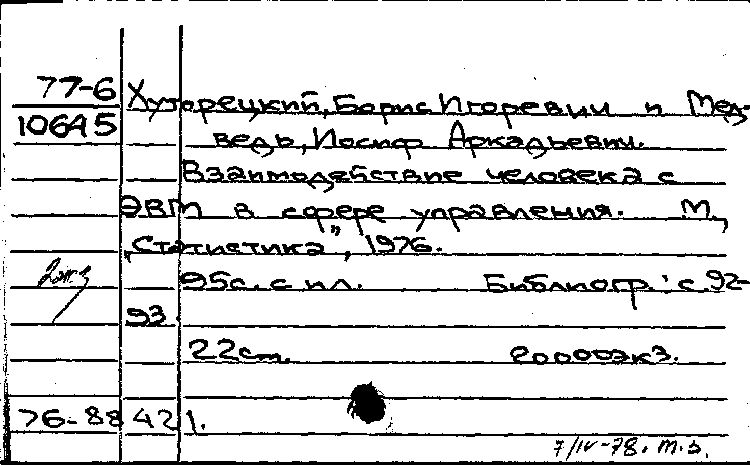 77-6
10645
Хуторецкий, Борис Игоревич и Мед-
ведь, Иосиф Аркадьевич.
Взаимодействие человека с
ЭВМ в сфере управления. М.,
„Статистика", 1976.
2экз
95с. с ил. Библиогр.: с. 92-
93.
22см. 20000экз.
76-88421.
7/IV-78. т.з.